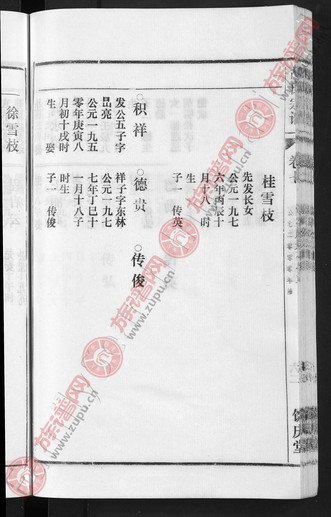 桂雪枝
先发长女
公元一九七
六年丙辰十
月十八 时
生
子一 传英
○积祥
发公五子字
昌亮
公元一九五
零年庚寅八
月初十戌时
生 娶
○德贵
祥子字东林
公元一九七
七年丁巳十
一月十八子
时生
子一 传俊
○传俊
徐雪枝
族谱网
www.zupu.cn
族谱网
www.zupu.cn